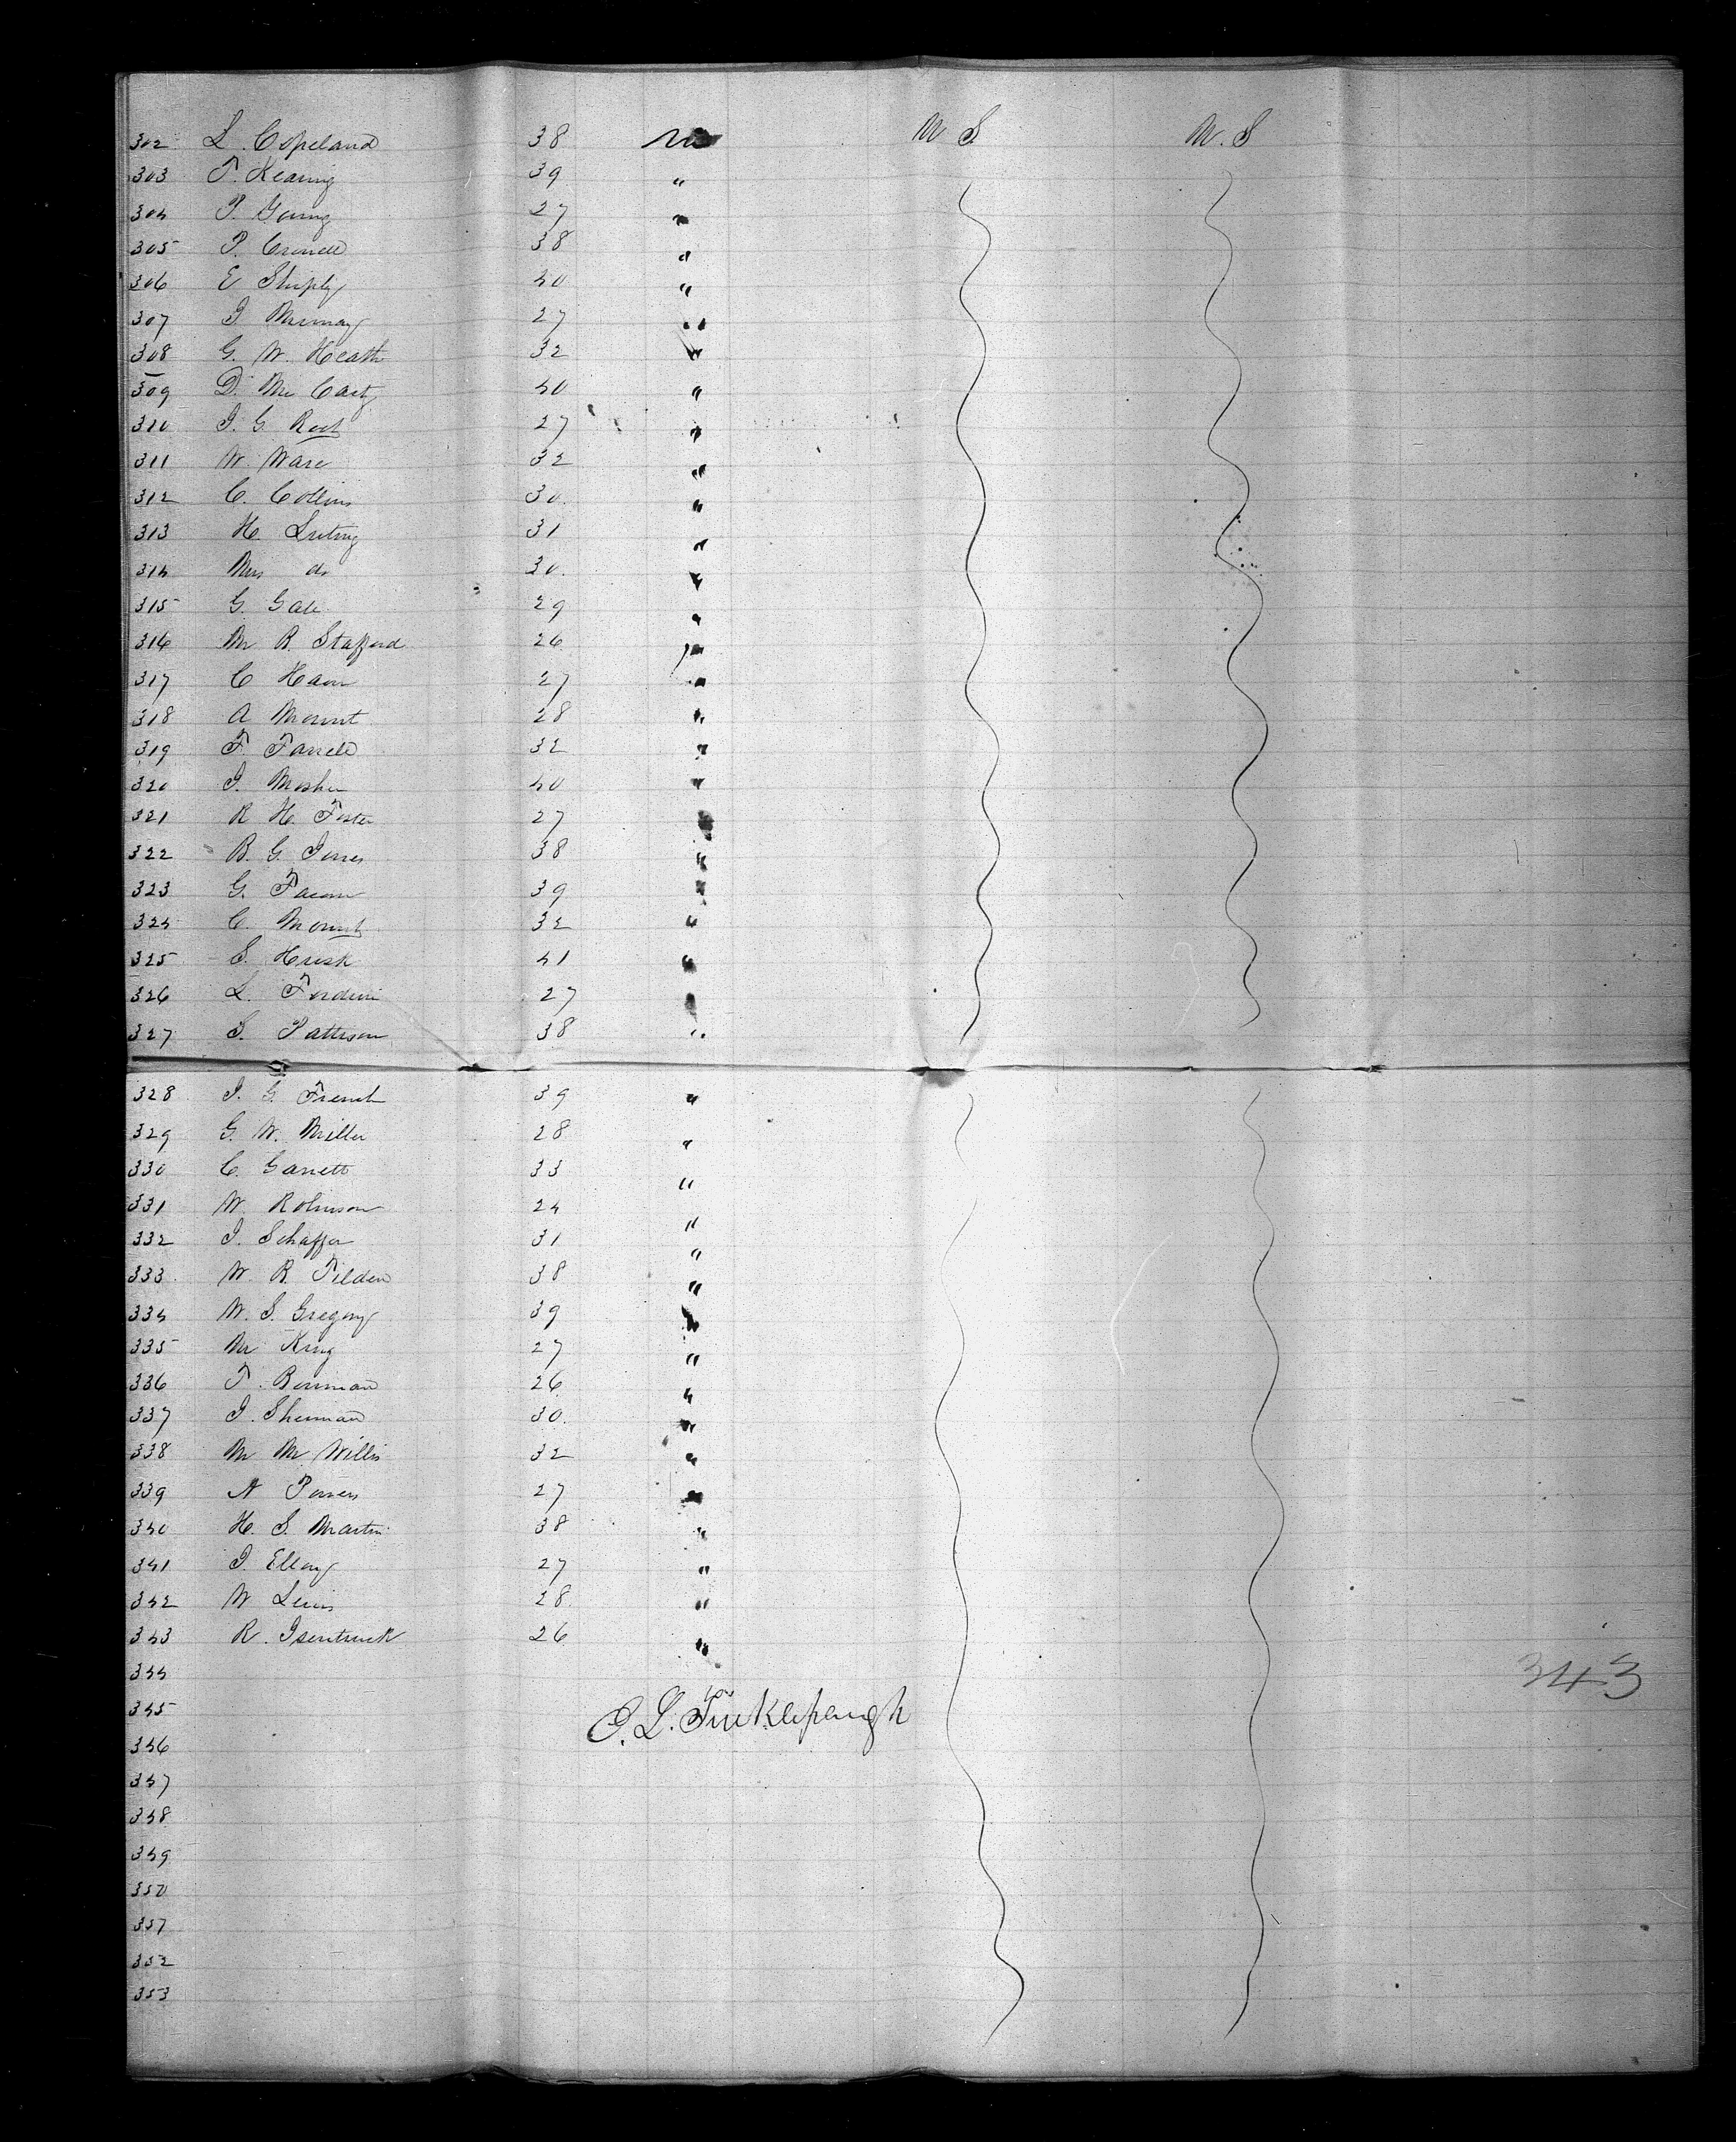 302 L. Copeland 38 m U S. U. S
303 T. Kearing 39 "
304 P. Young 27 "
305 P. Crowell 38 "
306 E Shiply 40 "
307 J Murray 27 "
308 G. W. Heath 32 "
309 D. Mc Carty 40 "
310 J. G. Root 27 "
311 W. Ware 32 "
312 C. Collins 30. "
313 H. 31 "
314 Mrs do 30. "
315 G. Gale 29 "
316 Mr R. Stafford 26 "
317 C Ham 27 "
318 A Mount 28 "
319 F. Farrell 32 "
320 J. Mosher 40 "
321 R H. Foster 27 "
322 B. G. Jones 38 "
323 G. 39 "
324 C. Mount 32 "
325 S. 41 "
326 L. 27 "
327 S. Pattison 38 "
328 J. G. French 39 "
329 G. W. Miller 28 "
330 C. Garrett 33 "
331 W. Robinson 24 "
332 J. Schaffer 31 "
333 W R. Tilden 38 "
334 W. S. Gregory 39 "
335 Mr King 27 "
336 T. 26 "
337 J. Sherman 30. "
338 Mr Mc Willis 32 "
339 N Powers 27 "
340 H. S. Martin 38 "
341 J. Ellery 27 "
342 W Lewis 28 "
343 R. Isentruck 26 "
344 343
345 O. L. Tinklepaugh
346
347
348
349
350
351
352
353